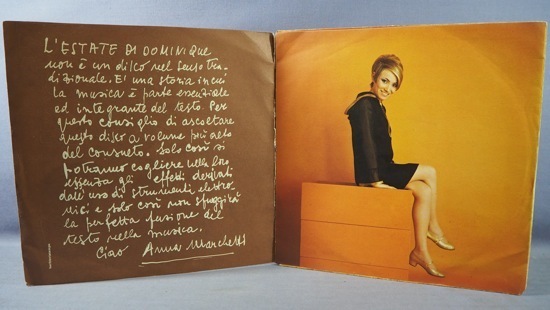 L'ESTATE DI DOMINIQUE
non è un disco nel senso tra-
dizionale. E' una storia in cui
la musica è parte essenziale
ed integrante del testo. Per
questo consiglio di ascoltare
questo disco a volume più alto
del consueto. Solo così si
potranno cogliere nella loro
essenza gli effetti derivati
dall'uso di strumenti elettro
nici e solo così non sfuggirà
la perfetta fusione del
testo nella musica.
Ciao Anna Marchetti